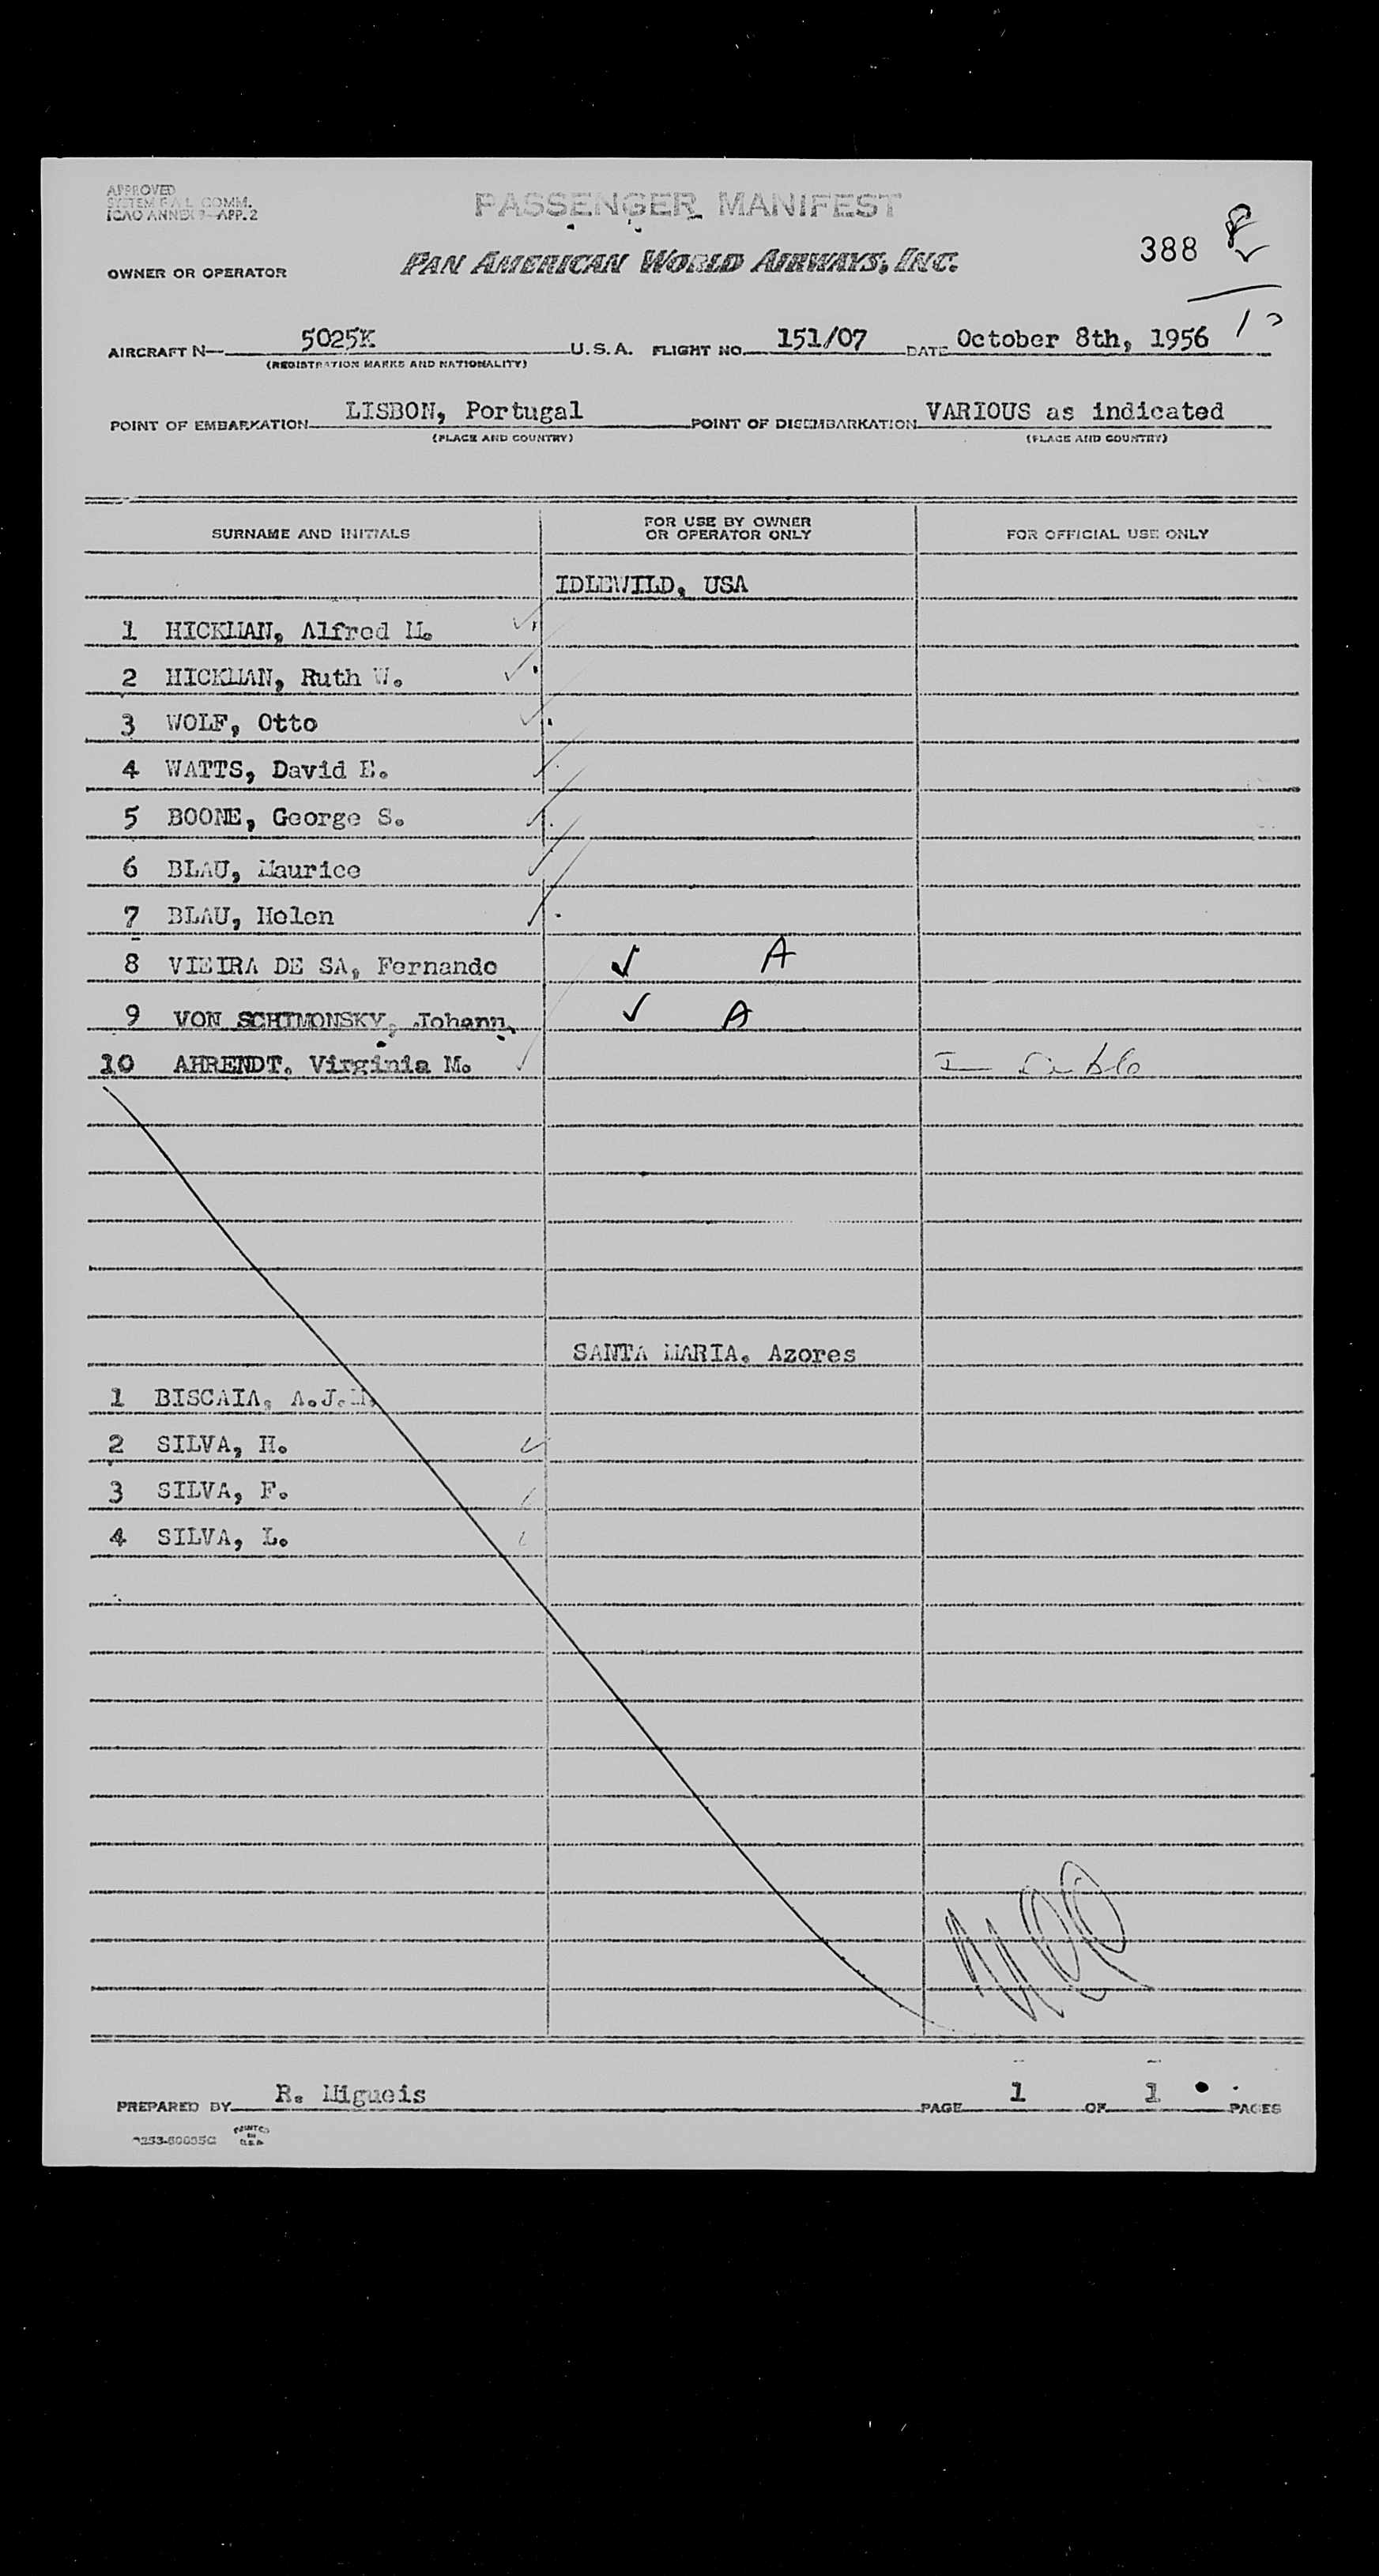 APPROVED
SYSTEM F.A.L. COMM.
ICAO ANNEX 9—APP. 2
PASSENGER MANIFEST
388
OWNER OR OPERATOR PAN AMERICAN WORLD AIRWAYS, INC.
AIRCRAFT N— 5025K U.S.A. FLIGHT NO. 151/07 DATE October 8th, 1956
(REGISTRATION MARKS AND NATIONALITY)
POINT OF EMBARKATION LISBON, Portugal POINT OF DISEMBARKATION VARIOUS as indicated
(PLACE AND COUNTRY) (PLACE AND COUNTRY)
SURNAME AND INITIALS FOR USE BY OWNER OR OPERATOR ONLY FOR OFFICIAL USE ONLY
IDLEWILD, USA
1 HICKMAN, Alfred M.
2 HICKMAN, Ruth W.
3 WOLF, Otto
4 WATTS, David E.
5 BOONE, George S.
6 BLAU, Maurice
7 BLAU, Helen
8 VIEIRA DE SA, Fernando ✓ A
9 VON SCHIMONSKY, Johann ✓ A
10 AHRENDT. Virginia M.
SANTA MARIA. Azores
1 BISCAIA, A.J.M.
2 SILVA, H.
3 SILVA, F.
4 SILVA, L.
PREPARED BY R. Migueis PAGE 1 OF 1 PAGES
PRINTED
IN
U.S.A.